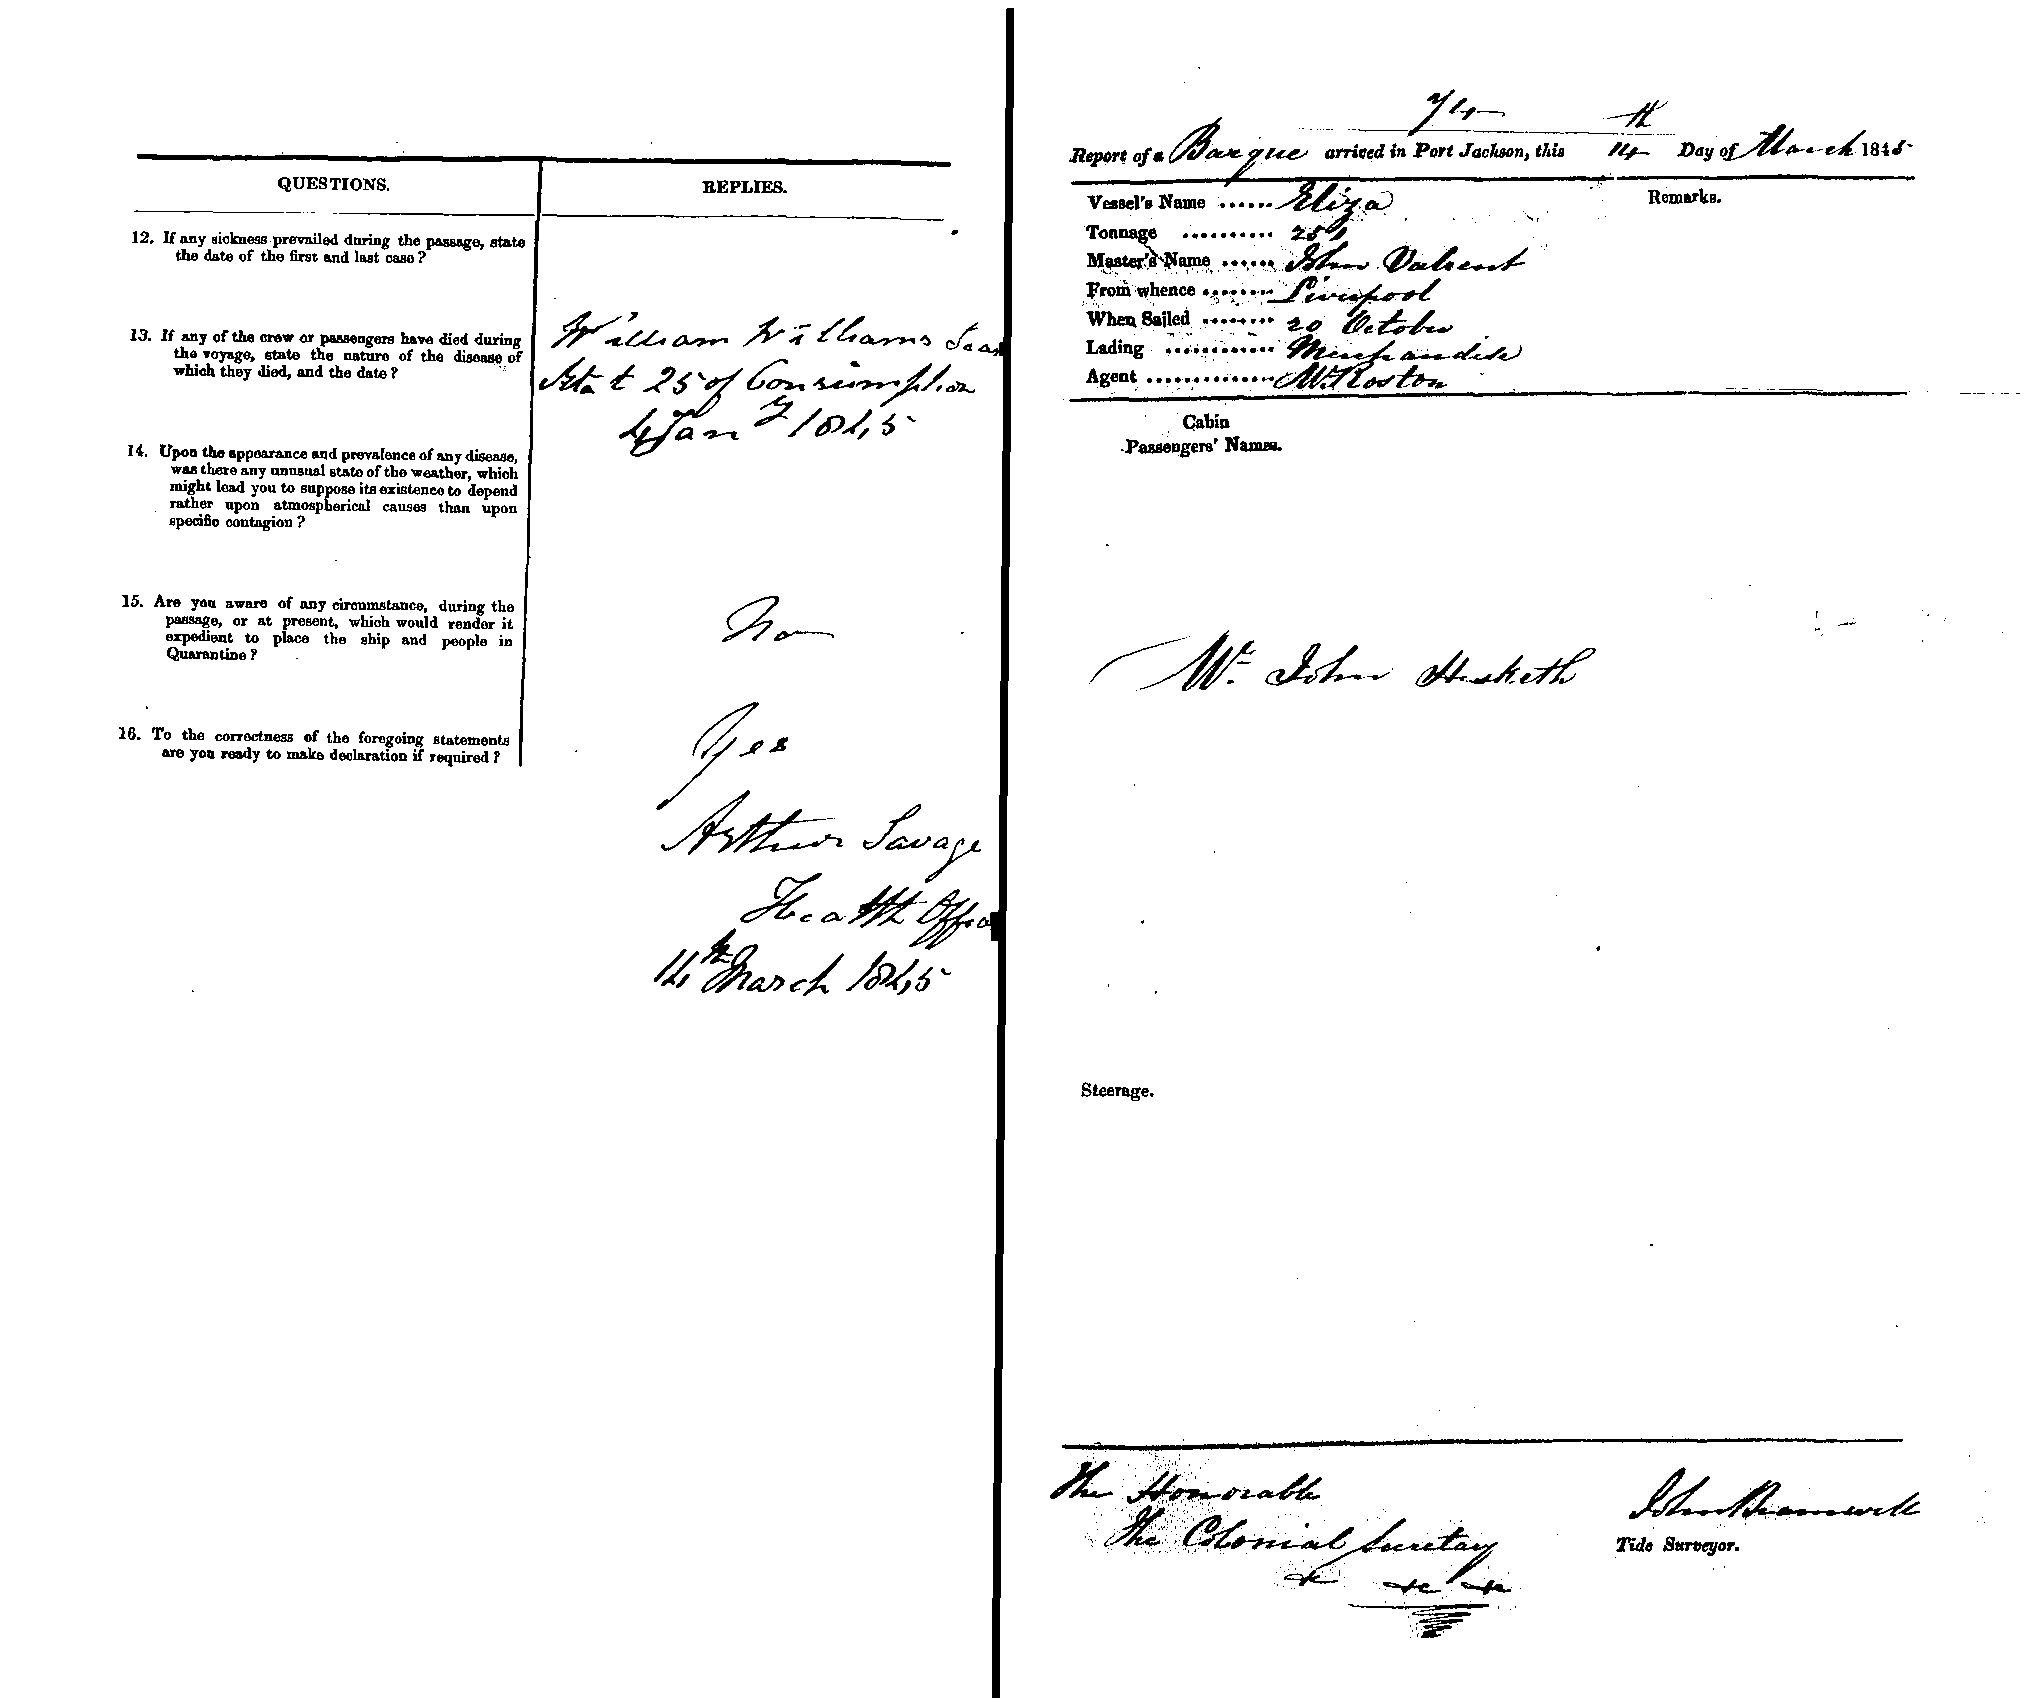 QUESTIONS.
REPLIES.
12. If any sickness prevailed during the passage, state
the date of the first and last case?
13. If any of the crew or passengers have died during
the voyage, state the nature of the disease of
which they died, and the date?
William Williams
Ætat 25 of Consumption
4 Jany 1845
14. Upon the appearance and prevalence of any disease,
was there any unusual state of the weather, which
might lead you to suppose its existence to depend
rather upon atmospherical causes than upon
specific contagion?
15. Are you aware of any circumstance, during the
passage, or at present, which would render it
expedient to place the ship and people in
Quarantine?
No
16. To the correctness of the foregoing statements
are you ready to make declaration if required?
Yes
Arthur Savage
Health
14th March 1845
74
Report of a Barque arrived in Port Jackson, this 14th Day of March 1845
Vessel's Name ...... Eliza
Remarks.
Tonnage .......... 251
Master's Name ...... John
From whence ........ Liverpool
When Sailed ........ 20 October
Lading ............ Merchandise
Agent ..............
Cabin
Passengers' Names.
Mr. John Hesketh
Steerage.
The Honorable
The Colonial Secretary
&c &c
John Bramwell
Tide Surveyor.